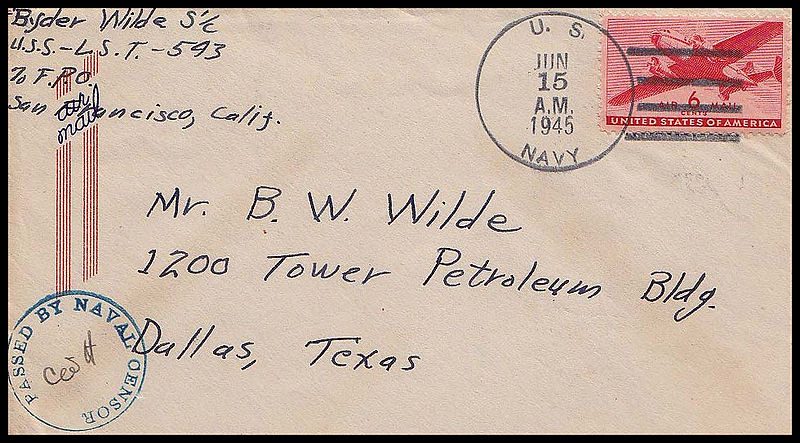 Byder Wilde S/c
U.S.S.-L.S.T.-593
% F.P.O.
San Francisco, Calif.
air
mail
U. S.
JUN
15
A.M.
1945
NAVY
AIR 6 MAIL
CENTS
UNITED STATES OF AMERICA
Mr. B. W. Wilde
1200 Tower Petroleum Bldg.
Dallas, Texas
PASSED BY NAVAL CENSOR